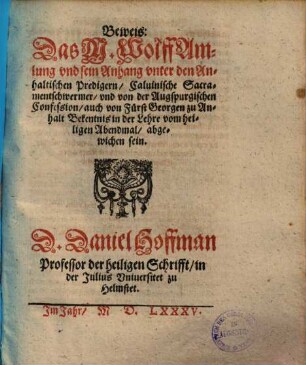 Beweis:
Das M. Wolff Am-
lung vnd sein Anhang vnter den An-
haltischen Predigern/ Caluinische Sacra-
mentschwermer/ vnd von der Augspurgischen
Confession/ auch von Fürst Georgen zu An-
halt Bekentnis in der Lehre vom hei-
ligen Abendmal/ abge-
wichen sein.
D. Daniel Hoffman
Professor der heiligen Schrifft/ in
der Julius Vniuersitet zu
Helmstet.
Im Jahr/ M D. LXXXV.